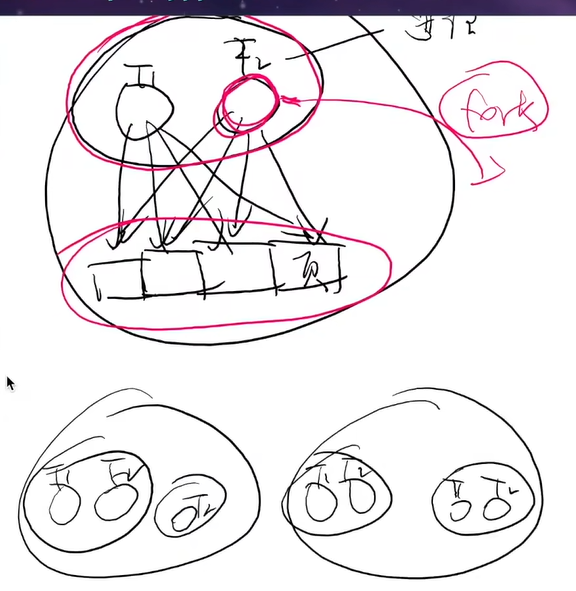 T1
T2
fork
页
T1 T2
T2
T1 T2
T1 T2